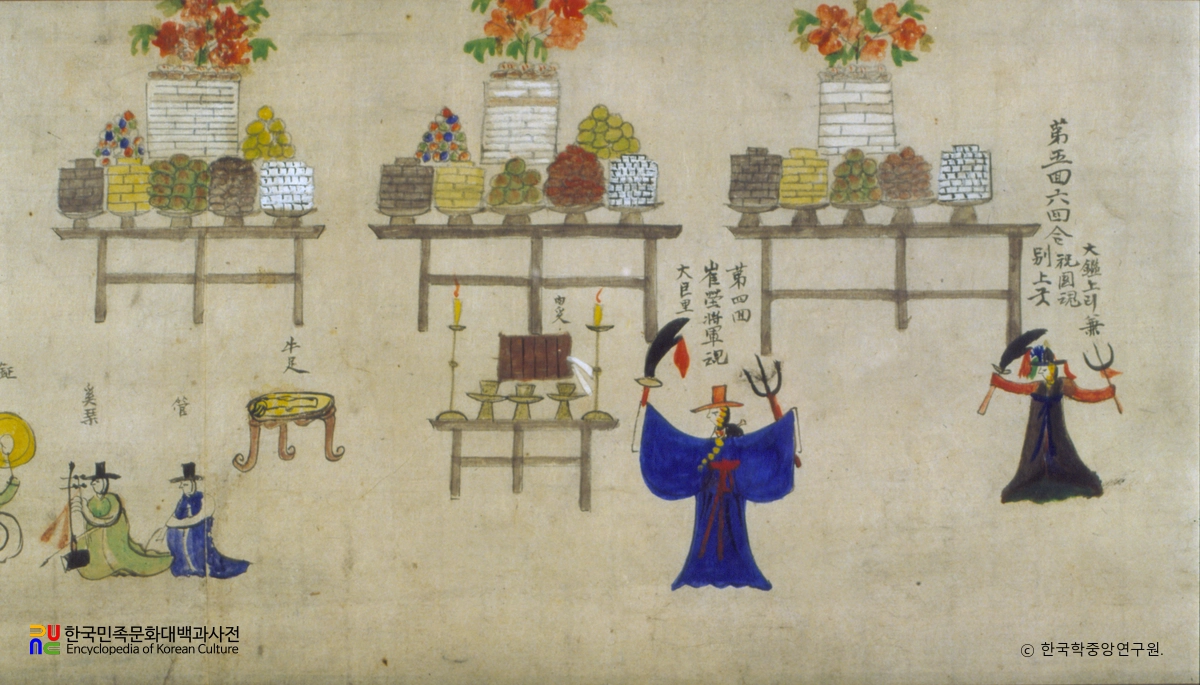 第五回六回合
大鑑上
別上
第四回
崔瑩將軍魂
大巨里
牛足
管
奚琴
한국민족문화대백과사전
Encyclopedia of Korean Culture
ⓒ 한국학중앙연구원.